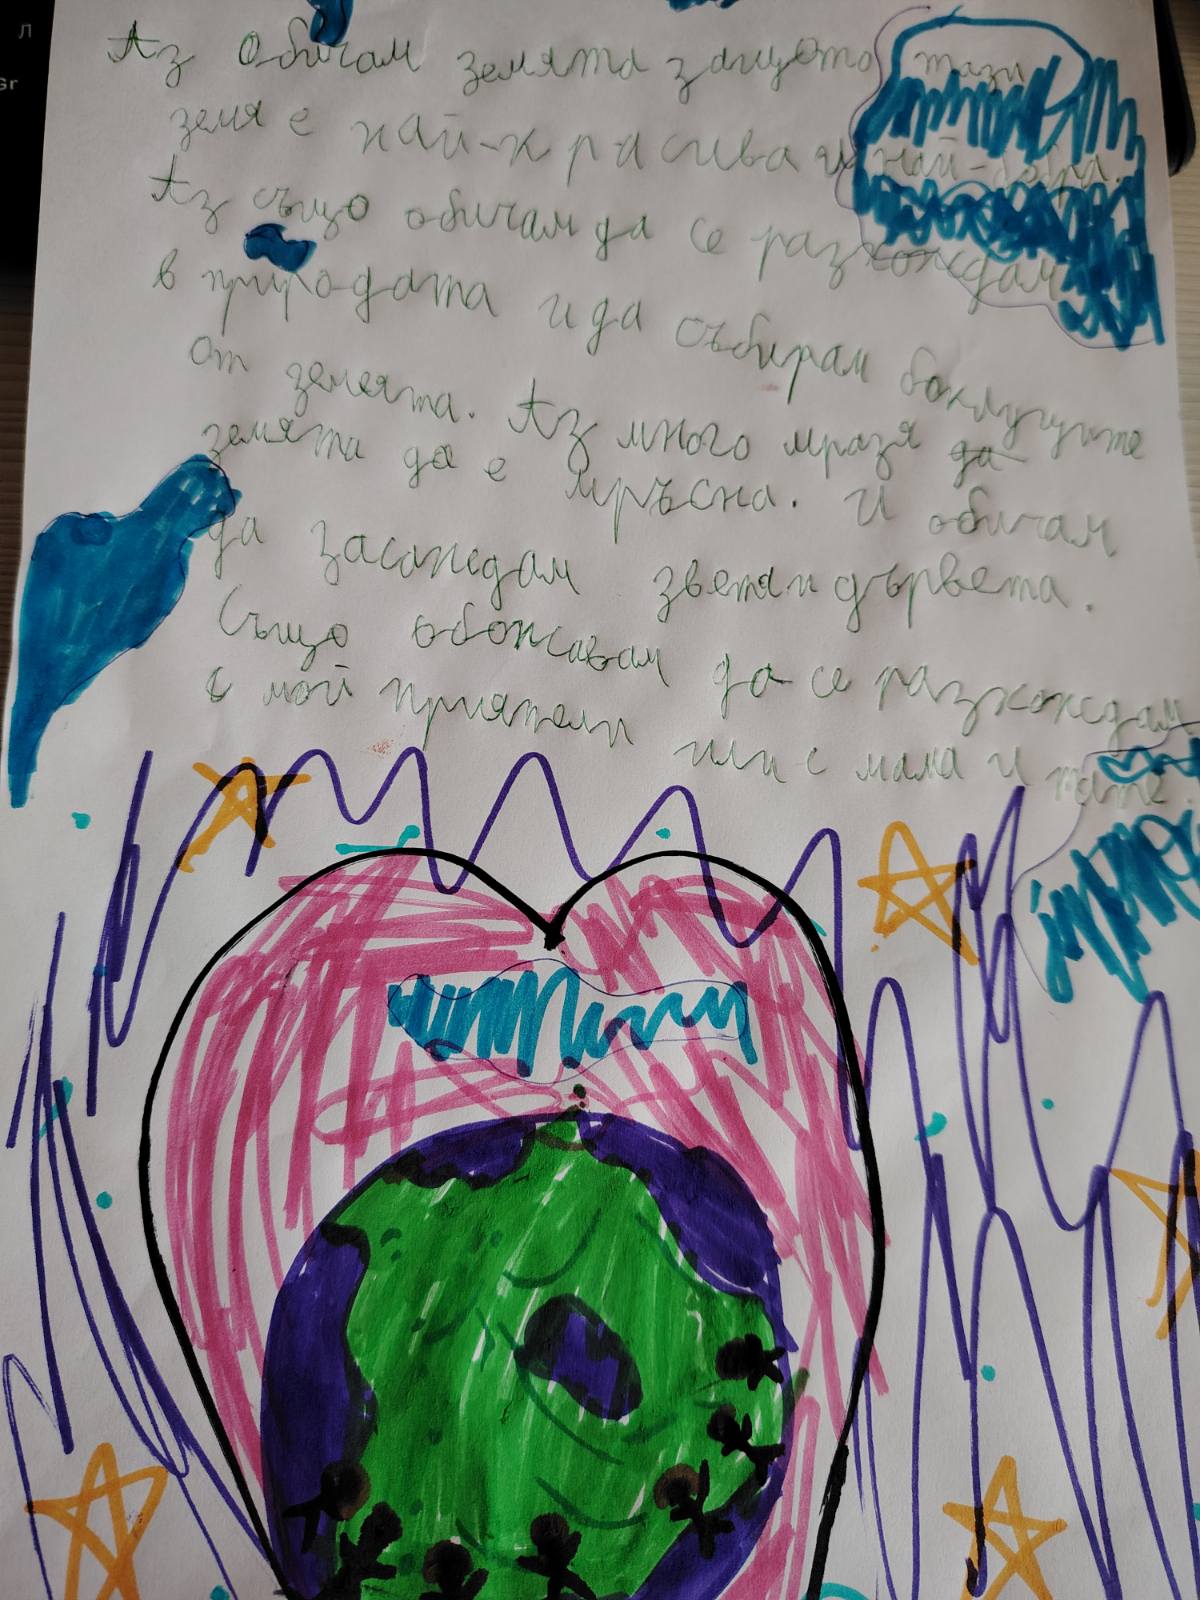 Л
Gr
Аз Обичам земята защото тази
земя е най-красива и най-добра.
Аз също обичам да се разхождам
в природата и да събирам боклуците
от земята. Аз много мразя да
земята да е мръсна. И обичам
да засаждам зветя и дървета.
Също обожавам да се разхождам
с мой приятели или с мама и тате.